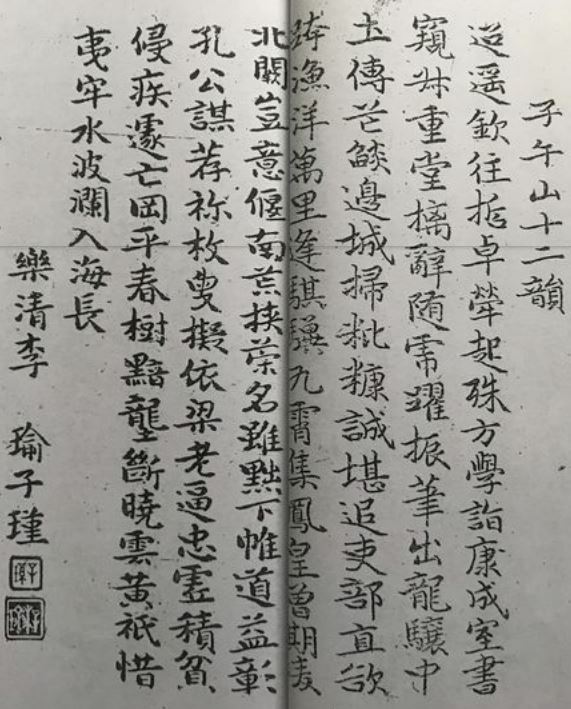 子午山十二韻
迢遥欽往哲卓犖起殊方學詣康成室書
窺叔重堂摛辭随霈躍振筆出龍驤中
土傳芒燄邊城掃粃糠誠堪追吏部直欲
跨漁洋萬里逢騏驥九霄集鳳皇曾期夌
北闕豈意偃南荒挾策名雖黜下帷道益彰
孔公謀荐祢枚叟擬依梁老逼忠靈積貧
侵疾遽亡岡平春樹黯壟斷曉雲黄祇惜
夷牢水波瀾入海長
樂清李 子瑾